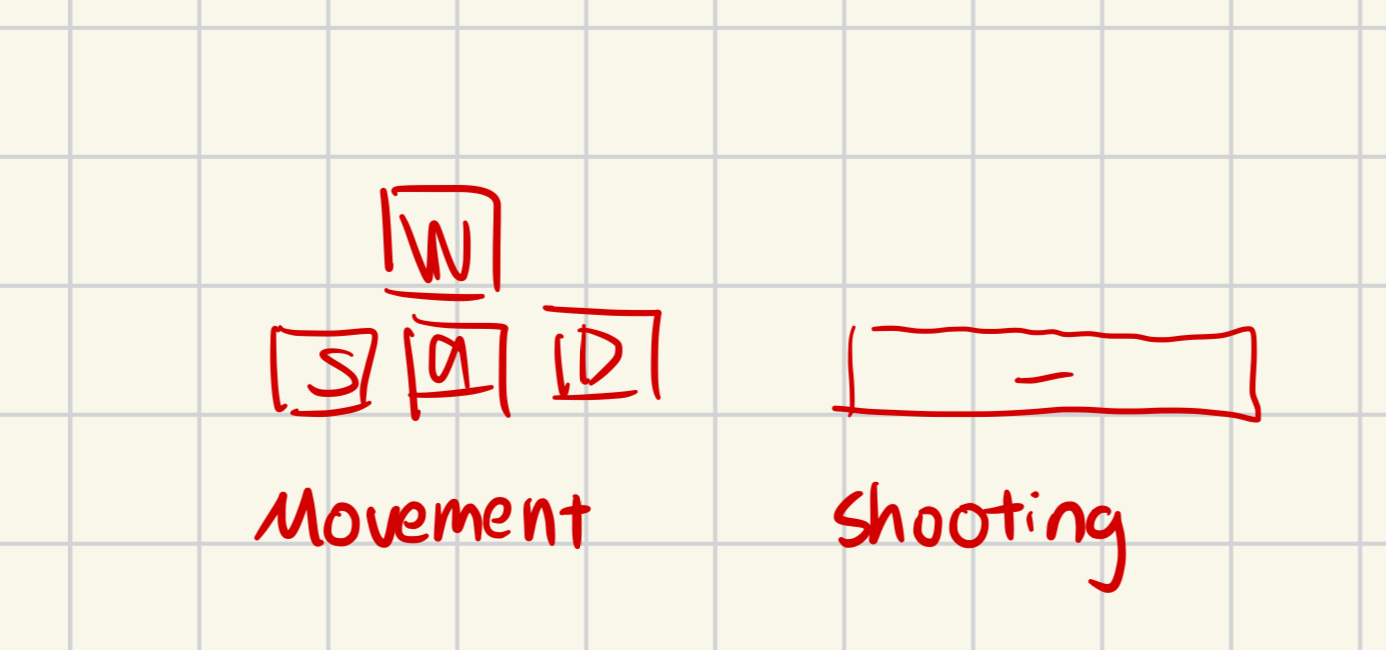 W
S a D
–
Movement shooting